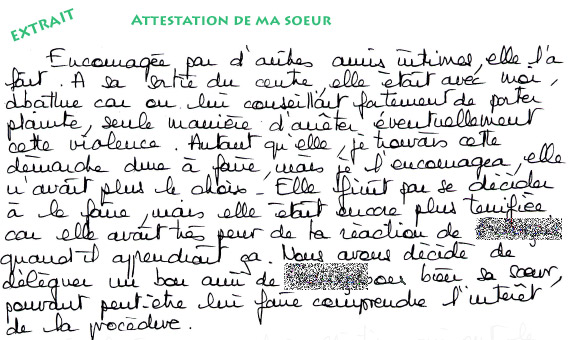 EXTRAIT
ATTESTATION DE MA SOEUR
Encouragée par d'autres amis intimes, elle l'a
fait. A sa sortie du centre, elle était avec moi,
abattue car on lui conseillait fortement de porter
plainte, seule manière d'arrêter éventuellement
cette violence. Autant qu'elle, je trouvais cette
démarche dure à faire, mais je l'encourageai, elle
n'avait plus le choix. Elle finit par se décider
à le faire, mais elle était encore plus terrifiée
car elle avait très peur de la réaction de
quand il apprendrait ça. Nous avons décidé de
déléguer un bon ami de bien sa soeur,
pouvant peut-être lui faire comprendre l'intérêt
de la procédure.